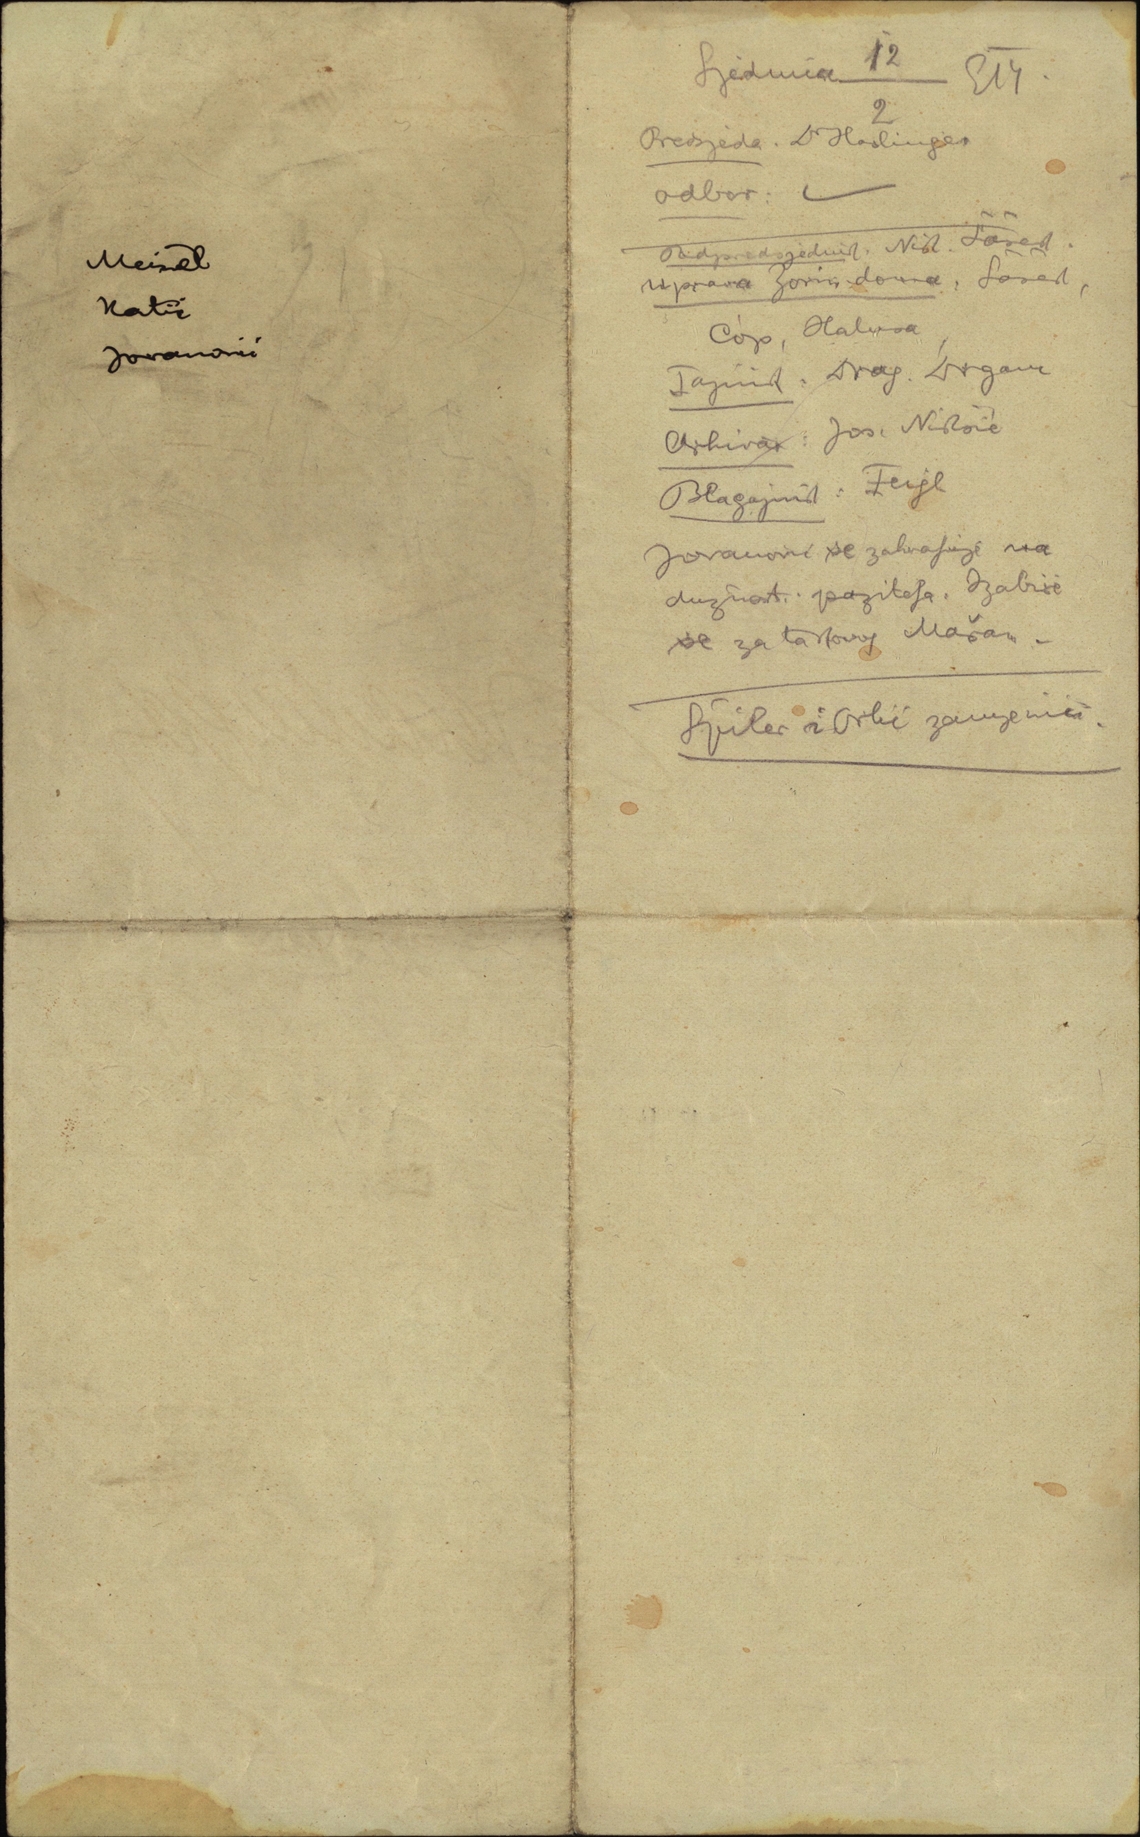 Meisel
Katić
Jovanović
Sjednica 12/2 914.
Predsjeda. Dr Haslinger
odbor:
Podpredsjednik. Nik. Šašek.
uprava Zorin doma. Šašek,
Cóp, Halusa,
Tajnik. Drag. Drgane
Arhivar: Jos. Nikšić
Blagajnik: Feigl
Jovanović se zahvaljuje na
dužnost. pazitelja. Izabire
se za takovog Mašan.
Špiler i Orlić zamjenici.